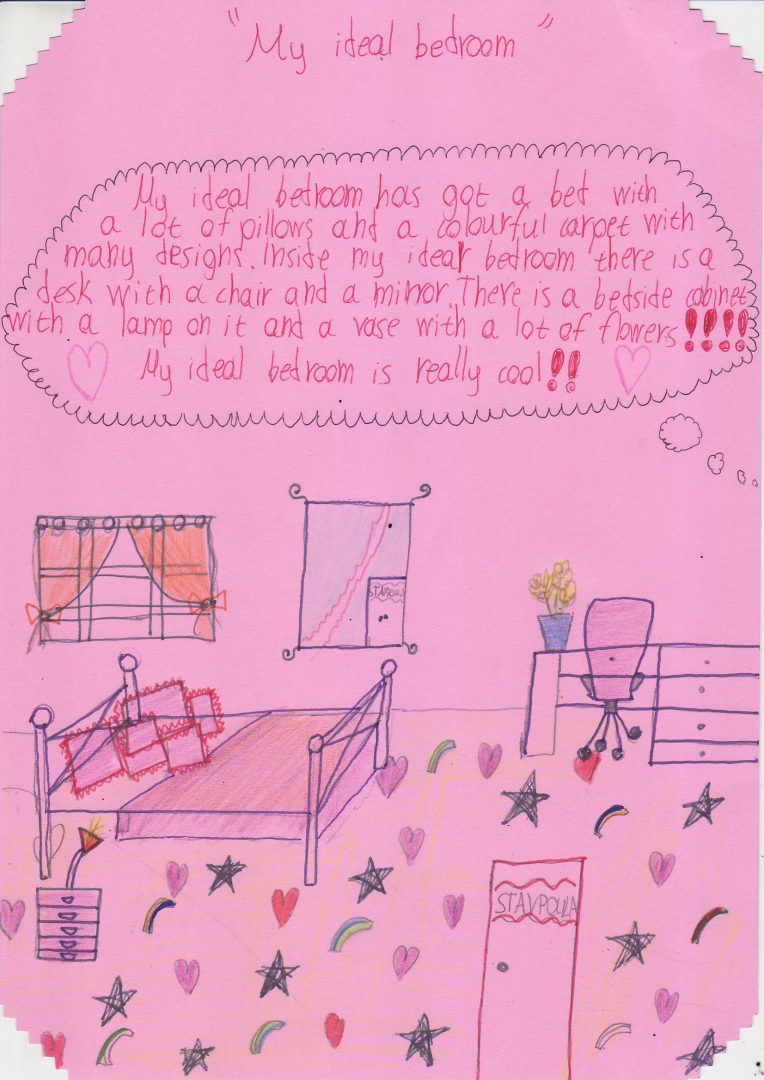 "My ideal bedroom"
My ideal bedroom has got a bed with
a lot of pillows and a colourful carpet with
many designs. Inside my idear bedroom there is a
desk with a chair and a mirror. There is a bedside cabinet
with a lamp on it and a vase with a lot of flowers!!!!
My ideal bedroom is really cool!!
STAVPOULA
STAVPOULA